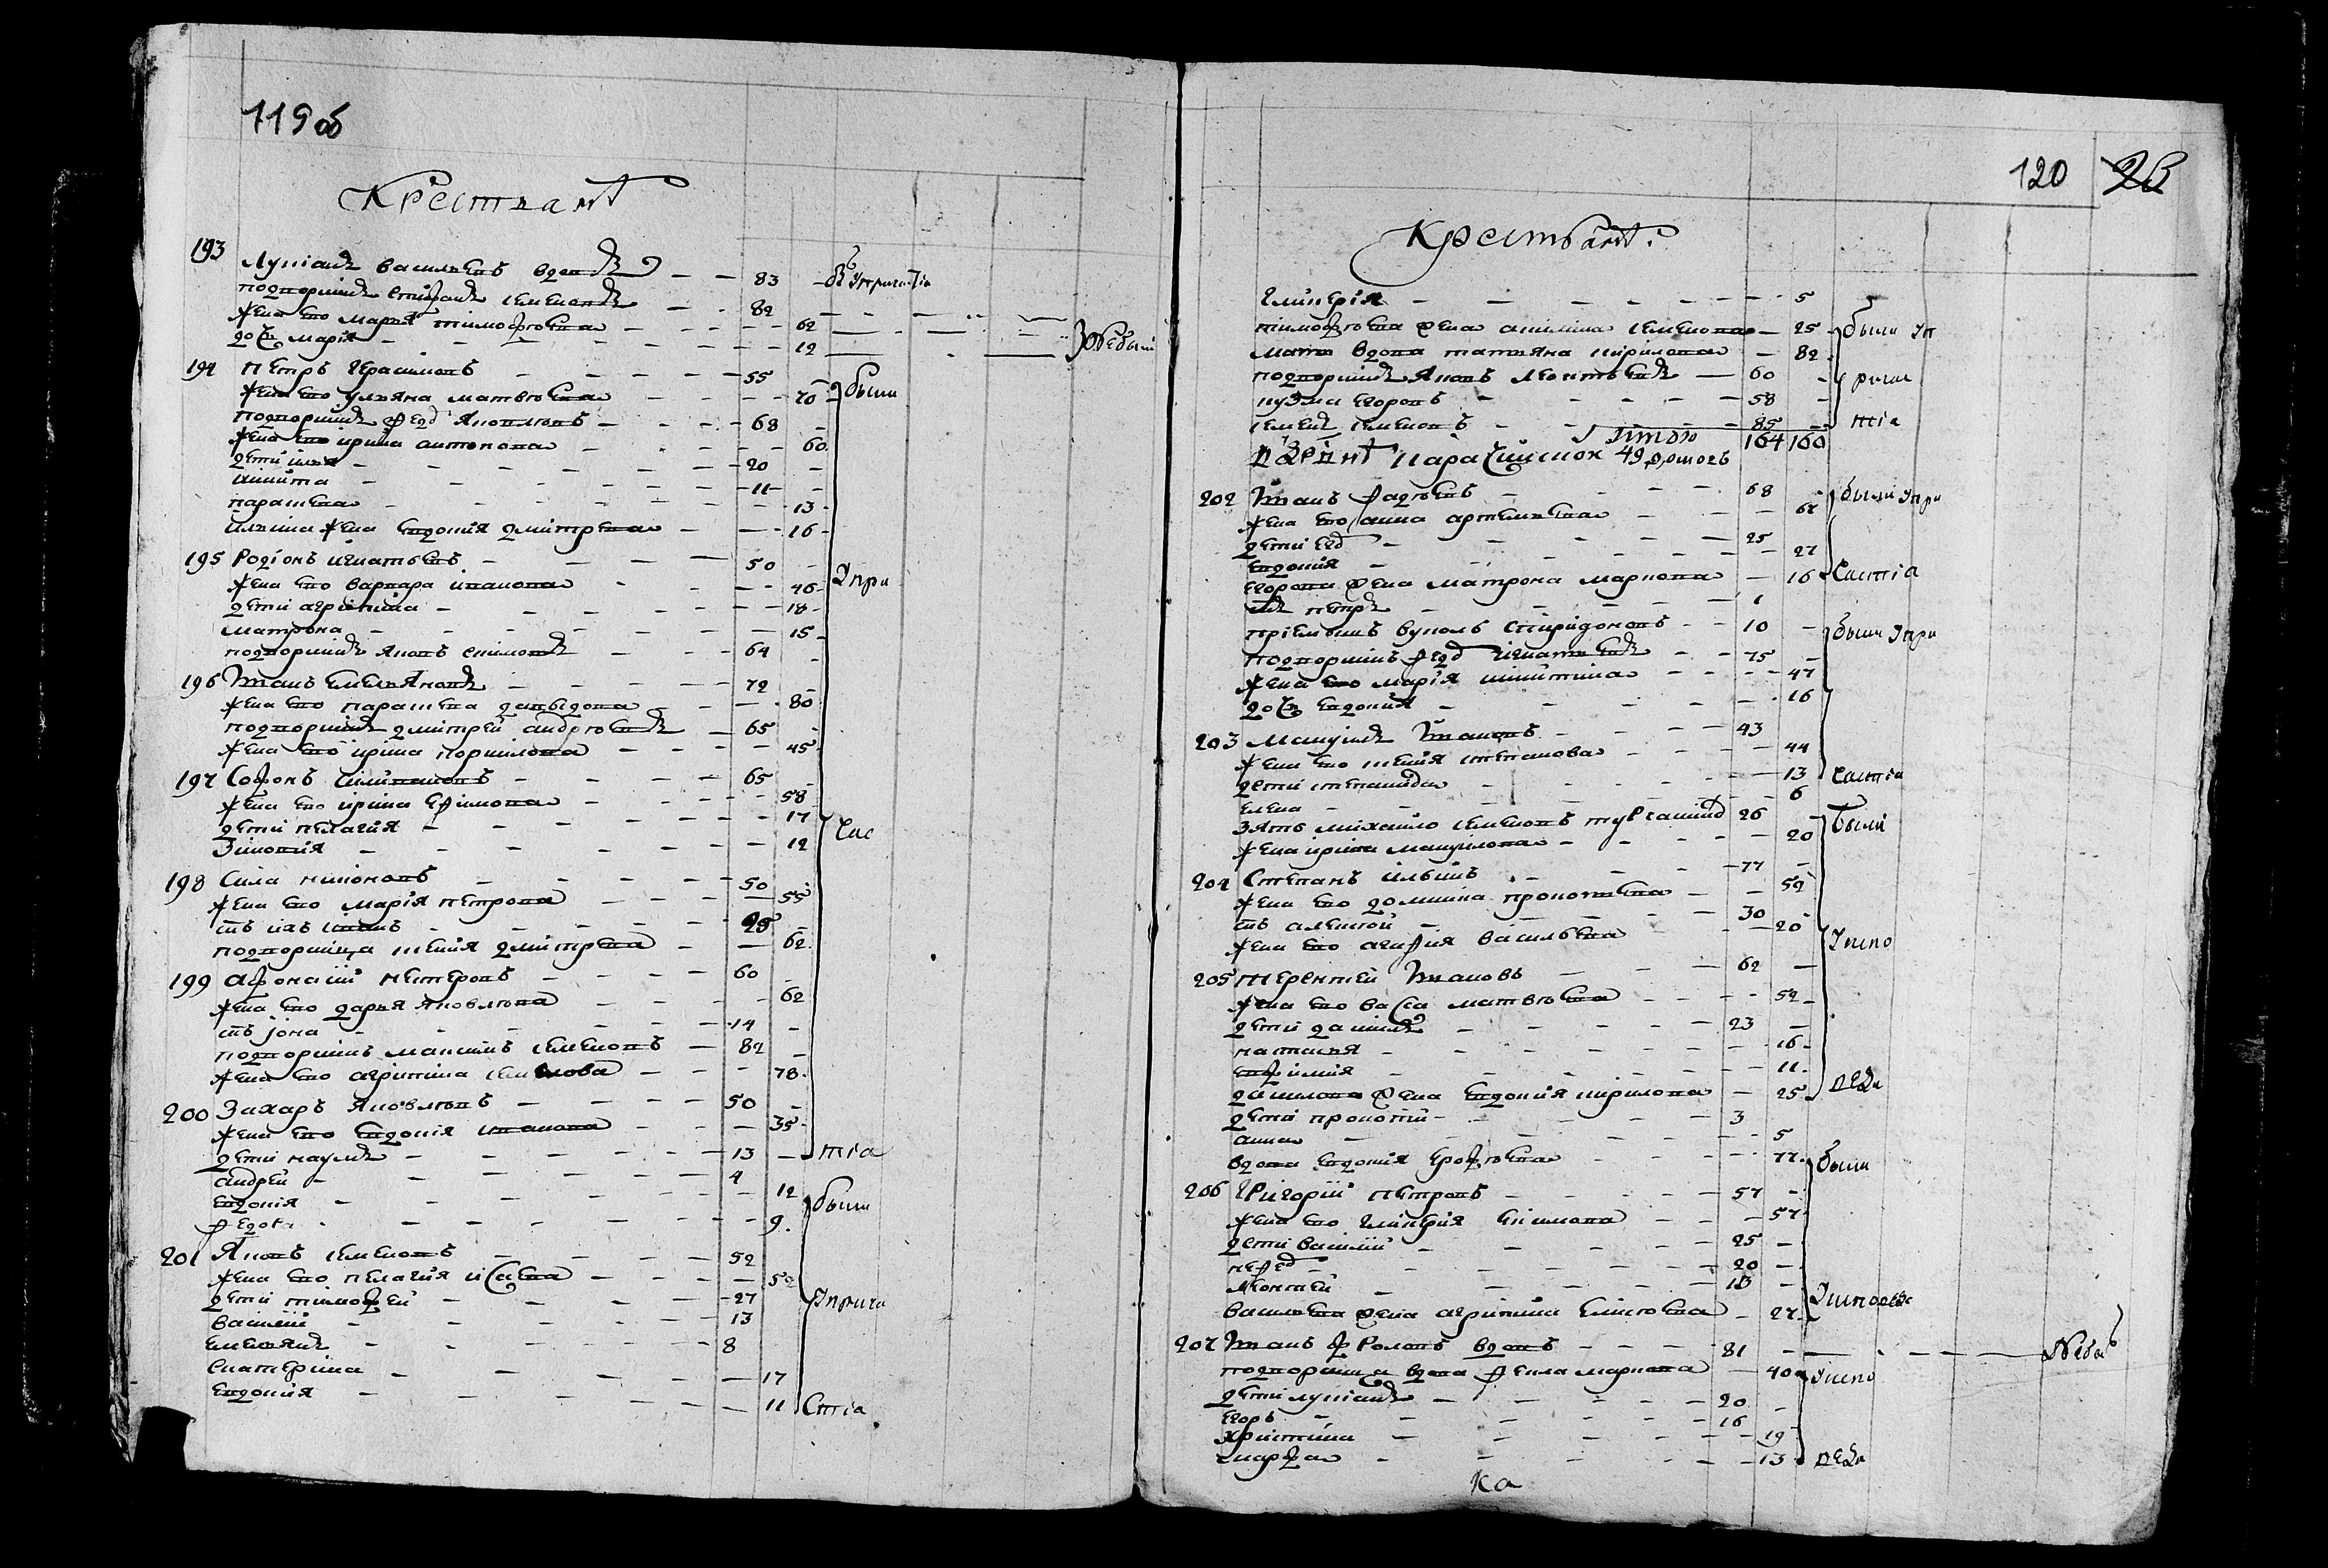 119 об
Крестьянъ
193 Лукіанъ васильевъ вдовъ 83 въ упричастіи
подворникъ стифанъ семеновъ 82
жена его марья тимофеева 62
дочь марія 12 Небыли
194 Петръ герасимовъ 55
жена его ульяна матвеева 70 были
подворникъ фед яковлевъ 68
жена его ирина антонова 60
дети илья 20
никита 11
парасковя 13
ильина жена евдокия дмитрева 16
195 Родіонъ игнатьевъ 50
жена его варвара иванова 46 Упри
дети агрипина 18
матрона 15
подворникъ яковъ 64
196 Иванъ емельяновъ 72
жена его парасева давыдова 80
подворникъ дмитрей андреевъ 65
жена его ирина корнилова 45
197 Софонъ 65
жена его ирина ефимова 58
дети пелагия 17 час
Зиновия 12
198 Сила 50
жена его марія петрова 55
сынъ их иванъ 25
подворница дмитрева 62
199 афонасий нестеровъ 60
жена его дарья яковлева 62
сынъ иона 14
подворникъ максимъ семеновъ 82
жена его агрипина семенова 78
200 Захаръ яковлевъ 50
жена его евдокія иванова 35
дети наумъ 13 тіа
андрей 4
евдокія 12 были
федора 9
201 Яковъ семеновъ 52
жена его пелагия исаева 52
дети тимофей 27 Упричи
василий 13
емельянъ 8
екатерина 17
евдокия 11 Стіа
120
Крестьянъ
гликерія 5
тимофеева жена акилина семенова 25 были уп
мать вдова татьяна кирилова 82
подворникъ яковъ леонтьевъ 60 ричас
кузма егоровъ 58
семенъ семеновъ 85 тіа
итого 164 160
49 дворовъ
202 Иванъ фадеевъ 68 были упри
жена его анна артемьева 64
дети 25
евдокия 27
егорова жена матрона маркова 16 частіа
сынъ петръ 1
приемышъ вуколъ спиридоновъ 10 были упри
подворникъ фед игнатьевъ 75
жена его марія никитина 47
дочь евдокия 16
203 Мануилъ Ивановъ 43
жена его степанова 44
дети степанида 13 частіа
елена 6
зять михайло семеновъ 26 были
жена ирина мануилова 20
204 Степанъ ильинъ 77
жена его домника прокопьева 52
сынъ алексей 30
жена его агафия васильева 20 Испо
205 терентей Ивановъ 62
жена его васса матвеева 52
дети данилъ 23
наталья 16
евфимия 11
данилова жена евдокия кирилова 25 веда
дети прокопий 3
анна 5
вдова евдокия ерофеева 77 были
206 Григорий петровъ 57
жена его гликерия екимова 57
дети василий 25
нефед 20
леонтей 13
васильева жена агрипина елисеева 27 Уисповеди
207 Иванъ фроловъ вдовъ 81 Небылъ
вдова фекла маркова 40 уиспо
дети лукіанъ 20
егоръ 16
христина 19
марфа 13 веда
Ка